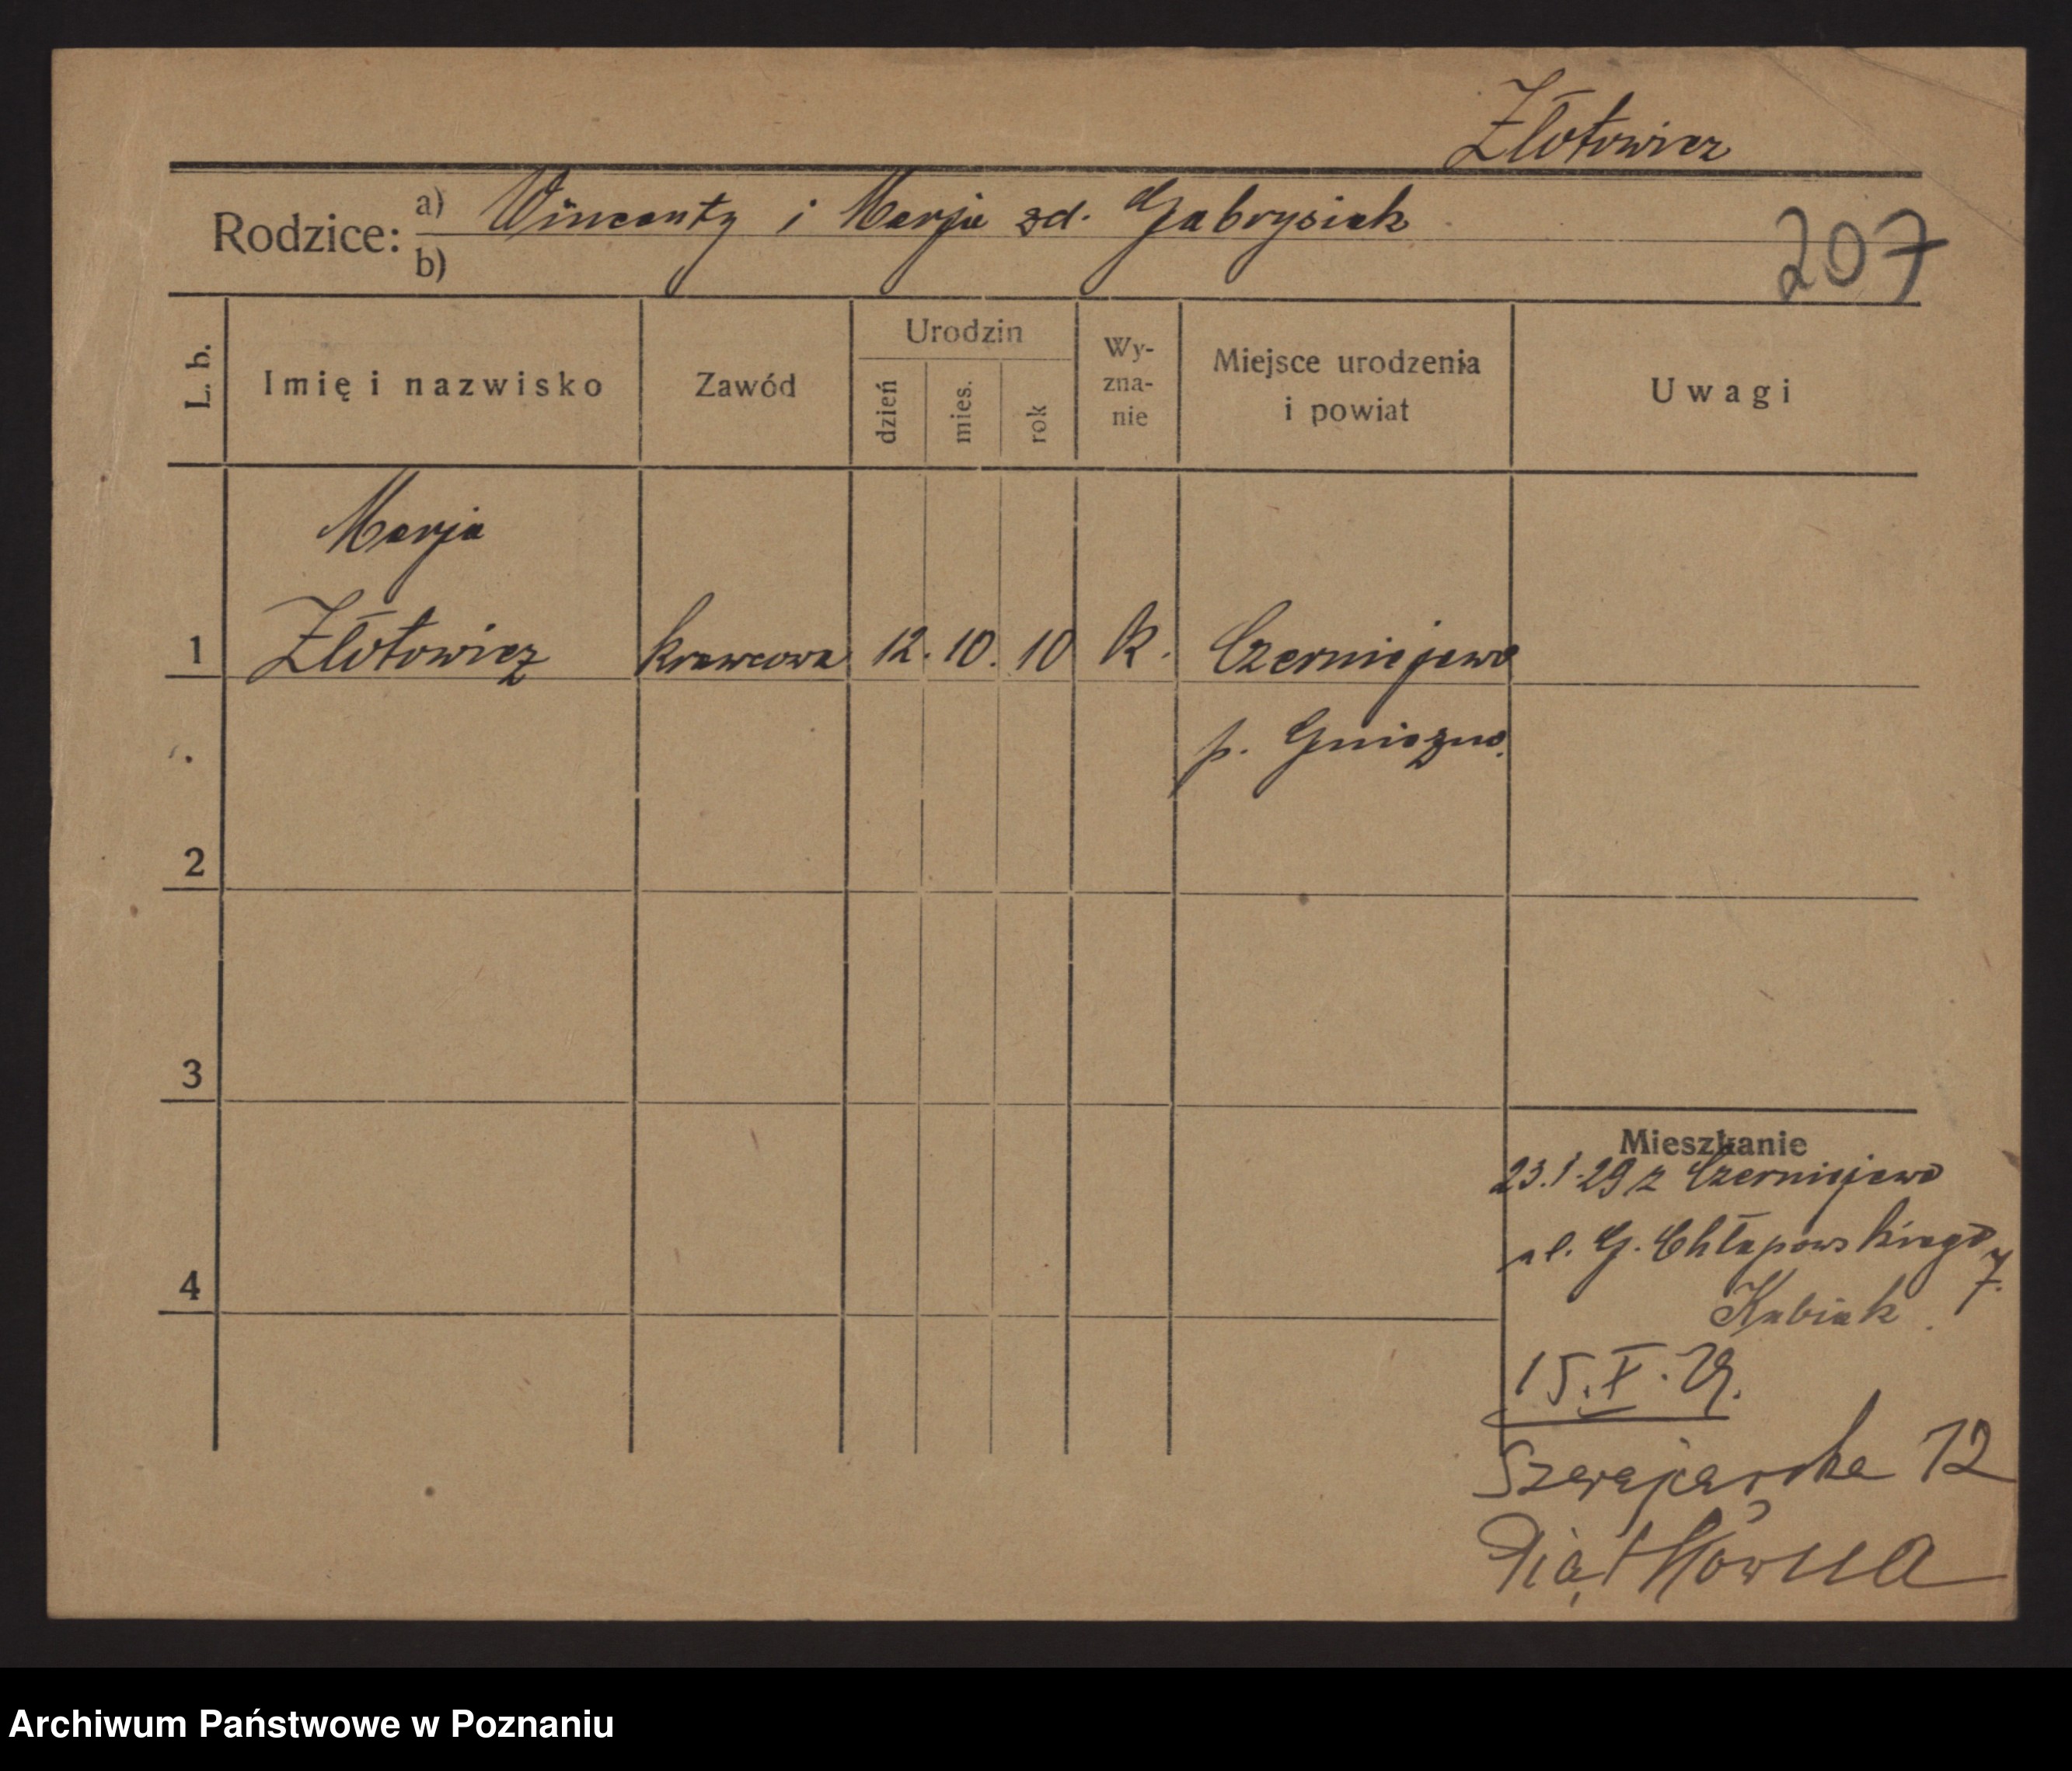 Złotowicz
Rodzice: a) Wincenty i Marja zd. Gabrysiak
b)
207
L. b.
Imię i nazwisko
Zawód
Urodzin
dzień
mies.
rok
Wy-
zna-
nie
Miejsce urodzenia
i powiat
Uwagi
Marja
1 Złotowicz krawcowa 12. 10. 10 k. Czerniejewo
p. Gniezno.
2
3
4
Mieszkanie
23.1.29 z Czerniejewo
ul. G. Chłapowskiego 7.
Kubiak.
15.X.29.
12
Piątkówna
Archiwum Państwowe w Poznaniu